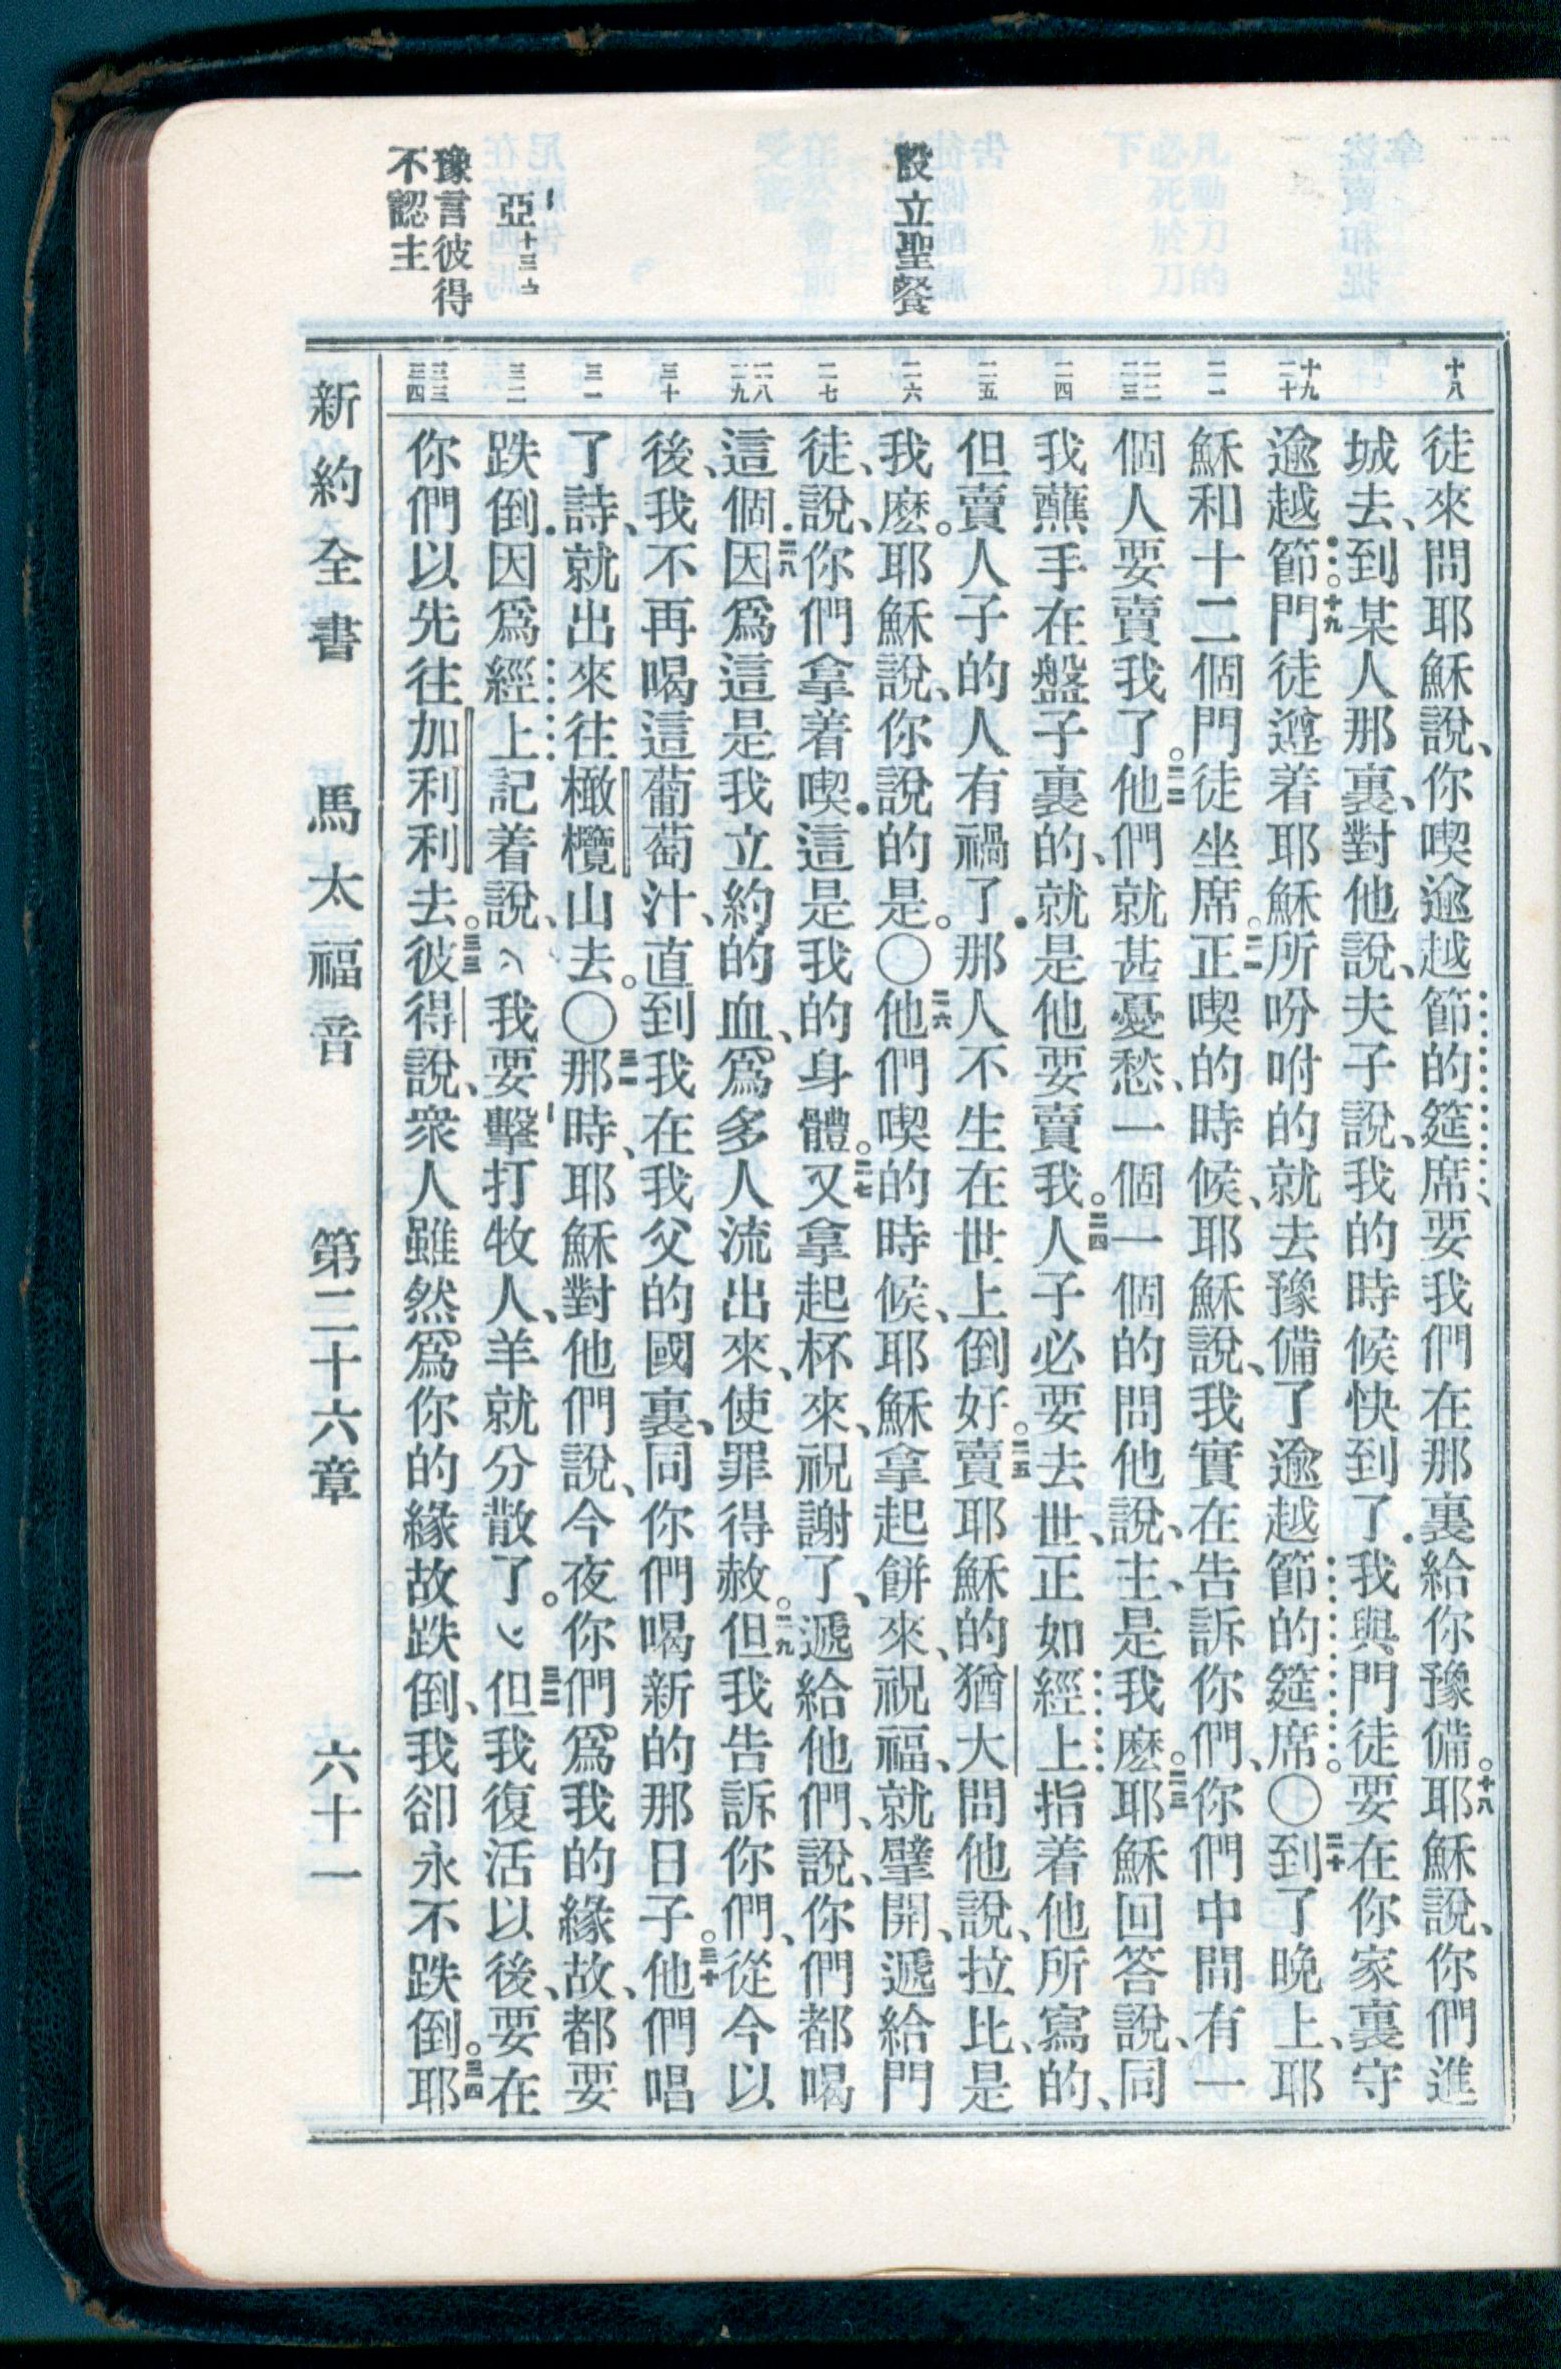 設立聖餐
亞十三
豫言彼得
不認主
十八
十九
二十
二一
二二
二三
二四
二五
二六
二七
二八
二九
三十
三一
三二
三三
三四
徒來問耶穌說、你喫逾越節的筵席、要我們在那裏給你豫備。十八耶穌說、你們進
城去、到某人那裏、對他說、夫子說、我的時候快到了．我與門徒要在你家裏守
逾越節。十九門徒遵着耶穌所吩咐的就去豫備了逾越節的筵席。〇二十到了晚上、耶
穌和十二個門徒坐席。二一正喫的時候、耶穌說、我實在告訴你們、你們中間有一
個人要賣我了。二二他們就甚憂愁、一個一個的問他說、主、是我麽。二三耶穌回答說、同
我蘸手在盤子裏的、就是他要賣我。二四人子必要去世、正如經上指着他所寫的、
但賣人子的人有禍了．那人不生在世上倒好。二五賣耶穌的猶大問他說、拉比、是
我麽。耶穌說、你說的是。〇二六他們喫的時候、耶穌拿起餅來、祝福、就擘開、遞給門
徒、說、你們拿着喫．這是我的身體。二七又拿起杯來、祝謝了、遞給他們、說、你們都喝
這個．二八因爲這是我立約的血、爲多人流出來、使罪得赦。二九但我告訴你們、從今以
後、我不再喝這葡萄汁、直到我在我父的國裏、同你們喝新的那日子。三十他們唱
了詩、就出來往橄欖山去。〇三一那時、耶穌對他們說、今夜你們爲我的緣故、都要
跌倒．因爲經上記着說、我要擊打牧人、羊就分散了。三二但我復活以後、要在
你們以先往加利利去。三三彼得說、衆人雖然爲你的緣故跌倒、我卻永不跌倒。三四耶
新約全書　馬太福音　第二十六章　六十一